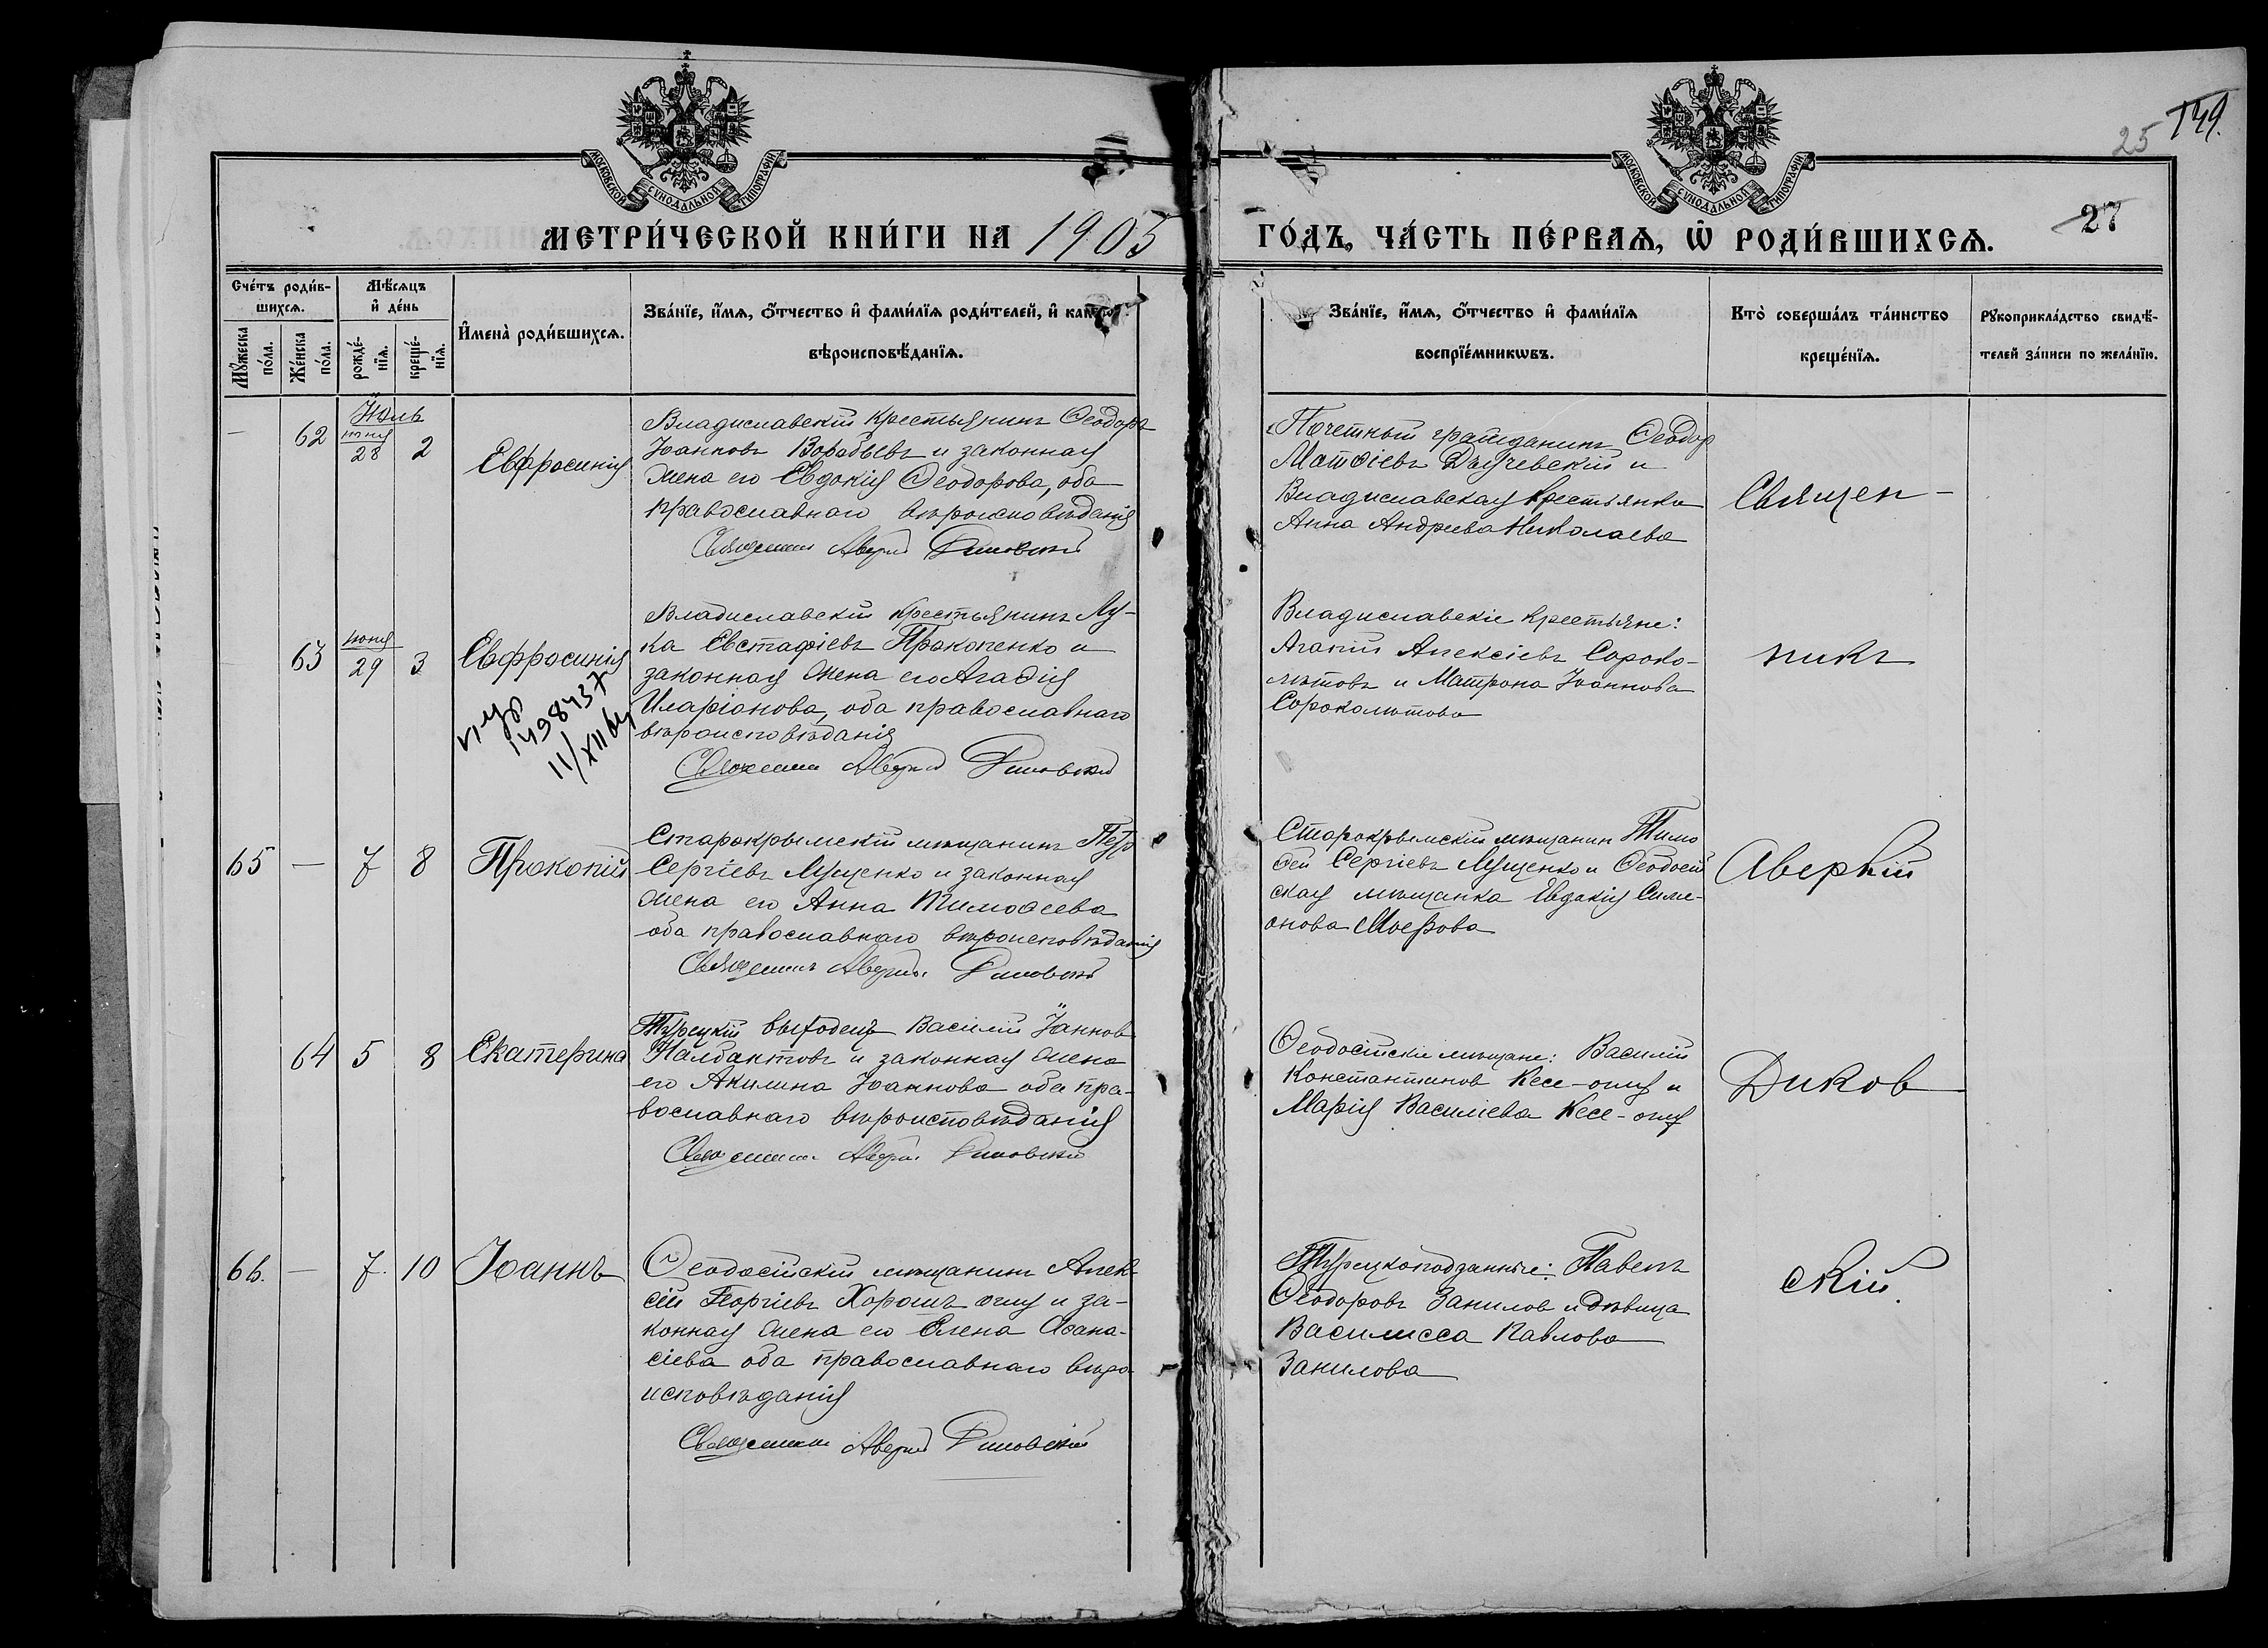 149.
25
27
МОСКОВСКОЙ СѴНОДАЛЬНОЙ ТИПОГРАФІИ
МОСКОВСКОЙ СѴНОДАЛЬНОЙ ТИПОГРАФІИ
МЕТРИ́ЧЕСКОЙ КНИ́ГИ НА 1905 ГО́ДЪ, ЧА́СТЬ ПЕ́РВАѦ, Ѡ҆ РОДИ́ВШИХСѦ.
Сче́тъ роди́в-
шихсѧ.
Мꙋ́жеска по́ла.
Же́нска по́ла.
Мѣ́сѧцъ
и҆ де́нь
рожде́-
нїѧ.
креще́-
нїѧ.
И҆мена̀ роди́вшихсѧ.
Зва́нїе, и҆́мѧ, ѻ҆́тчество и҆ фами́лїѧ роди́телей, и҆
вѣроисповѣ́данїѧ.
Зва́нїе, и҆́мѧ, ѻ҆́тчество и҆ фами́лїѧ
воспрїе́мникѡвъ.
Кто̀ соверша́лъ та́инство
креще́нїѧ.
Рꙋкоприкла́дство свидѣ́-
телей за́писи по жела́нїю.
— 62
Іюль
іюня
28
2
Евфросинія
Владиславскій крестьянинъ Ѳеодоръ
Іоанновъ Воробьевъ и законная
жена его Евдокія Ѳеодорова, оба
православнаго вѣроисповѣданія
Священникъ Аверкій Диковскій
Почетный гражданинъ Ѳеодор
Матѳіевъ и
Владиславская крестьянка
Анна Андреева Николаева
Священ-
63
іюня
29
3
Евфросинія
1498437
11/XII
Владиславскій крестьянинъ Лу-
ка Евстафіевъ Прокопенко и
законная жена его Агафія
Иларіонова, оба православнаго
вѣроисповѣданія
Священникъ Аверкій Диковскій
Владиславскіе крестьяне:
Агапій Алексіевъ Сороко-
лѣтовъ и Матрона Іоаннова
Сороколѣтова
никъ
65 — 7 8
Прокопій
Старокрымскій мѣщанинъ Петр
Сергіевъ Луценко и законная
жена его Анна Тимоѳеева
оба православнаго вѣроисповѣданія
Священникъ Аверкій Диковскій
Старокрымскій мѣщанин Тимо
ѳей Сергіевъ Луценко и Ѳеодосій
ская мѣщанка Евдокія Симе-
онова
Аверкій
64 5 8
Екатерина
Турецкій выходецъ Василій Іаннов
Налбантовъ и законная жена
его Акилина Іоаннова оба пра-
вославнаго вѣроисповѣданія
Священникъ Аверкій Диковскій
Ѳеодосійскіе мѣщане: Василій
Константинов Кесе-оглу и
Марія Василіева Кесе-оглу
Диков
66. — 7. 10
Іоаннъ
Ѳеодосійскій мѣщанинъ Алек-
сій Георгіевъ Хорошъ оглу и за-
конная жена его Елена Аѳана-
сіева оба православнаго вѣро
исповѣданія
Священникъ Аверкій Диковскій
Турецкоподданные: Павелъ
Ѳеодоровъ Занилов и дѣвица
Василисса Павлова
Занилова
скій.